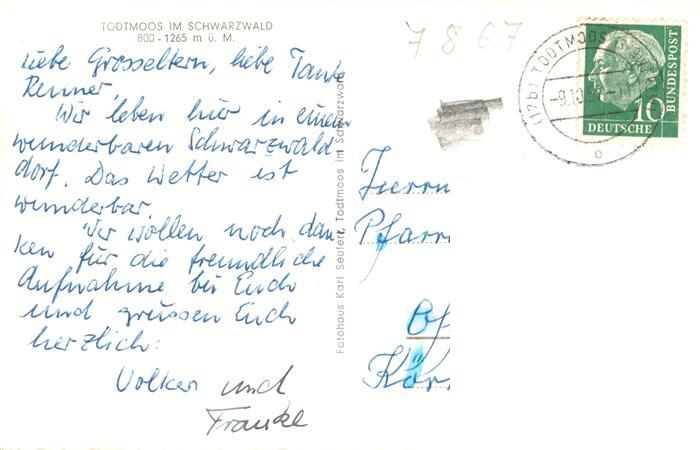 TODTMOOS IM SCHWARZWALD
800 - 1265 m ü. M.
Liebe Grosseltern, liebe Tante
Renner,
Wir leben hier in einem
wunderbaren Schwarzwald-
dorf. Das Wetter ist
wunderbar.
Wir wollen noch dan-
ken für die freundliche
Aufnahme bei Euch
und grüssen Euch
herzlich:
Volker und
Frauke
Fotohaus Karl Seufert, Todtmoos im Schwarzwald
7 8 67
(17b) TODTMOOS
-9.10.
DEUTSCHE
BUNDESPOST
10
Herrn
Pfarr
Kör